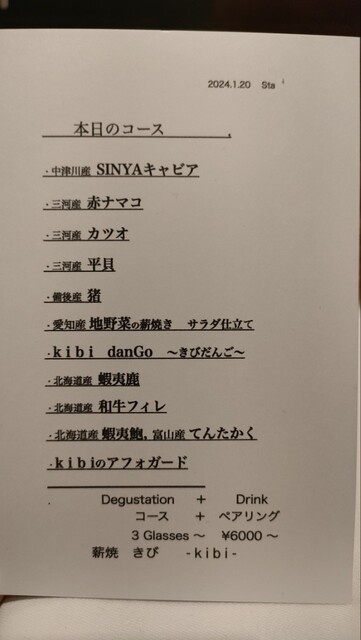 2024.1.20 Sta
本日のコース
・中津川産 SINYAキャビア
・三河産 赤ナマコ
・三河産 カツオ
・三河産 平貝
・備後産 猪
・愛知産 地野菜の薪焼き サラダ仕立て
・kibi danGo ～きびだんご～
・北海道産 蝦夷鹿
・北海道産 和牛フィレ
・北海道産 蝦夷鮑, 富山産 てんたかく
・kibiのアフォガード
Degustation + Drink
コース + ペアリング
3 Glasses ～ ¥6000 ～
薪焼 きび -kibi-